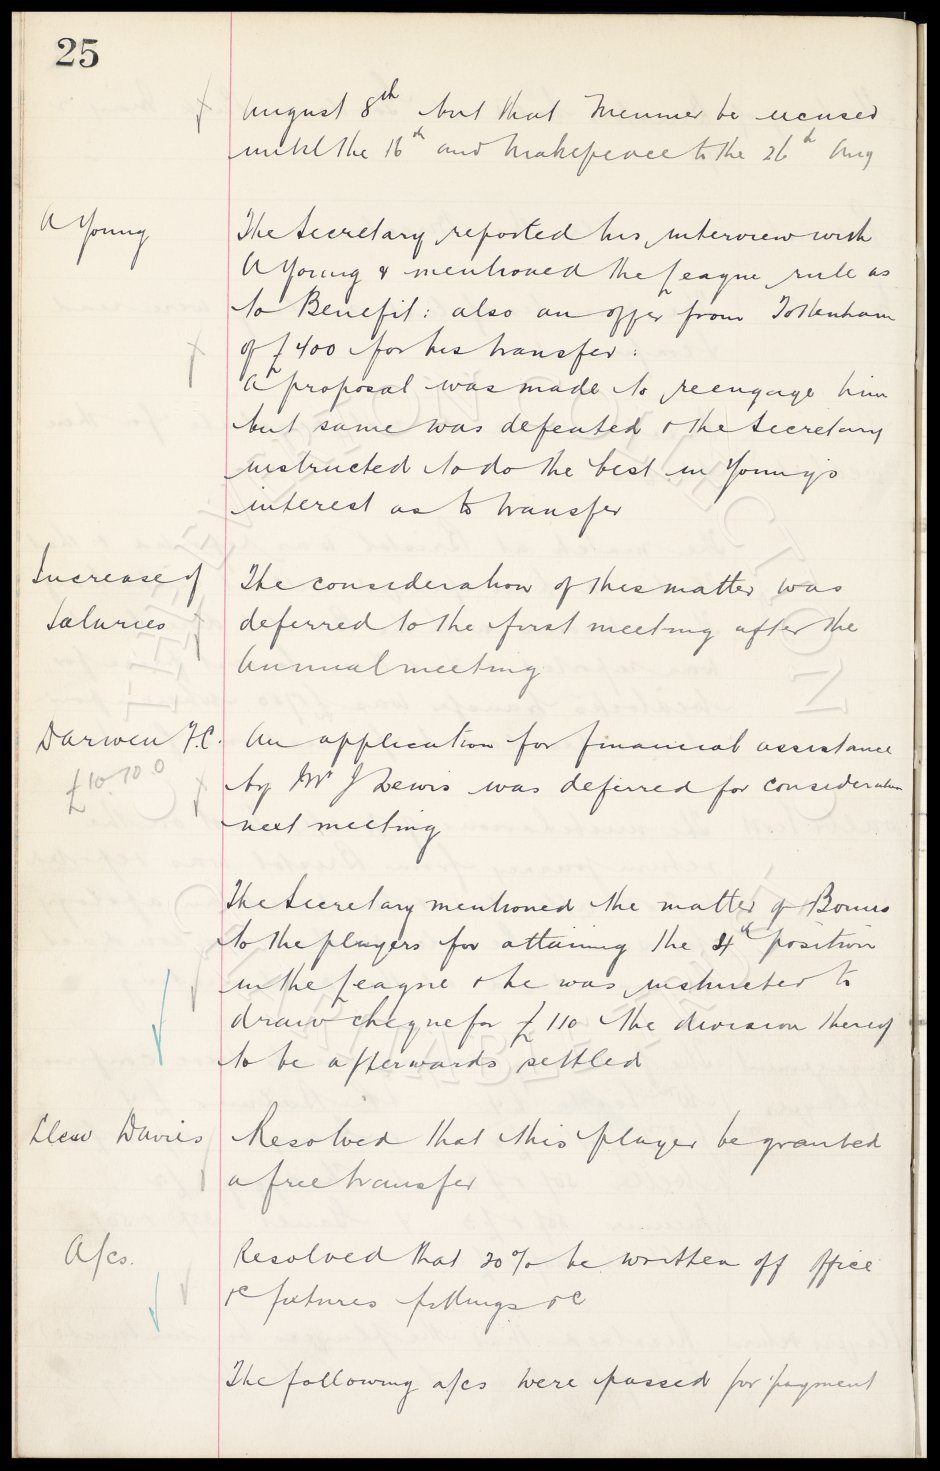 25
August 8th but that Menmer be excused
until the 16th and Makepeace to the 26th Aug
A Young
The Secretary reported his interview with
A Young & mentioned the League rule as
to Benefit: also an offer from Tottenham
of £400 for his transfer:
A proposal was made to reengage him
but same was defeated & the Secretary
instructed to do the best in Young's
interest as to transfer
Increase of
Salaries
The consideration of this matter was
deferred to the first meeting after the
Annual meeting
Darwen F.C.
£10-10-0
An application for financial assistance
by Mr J Lewis was deferred for consideration
next meeting
The Secretary mentioned the matter of Bonus
to the players for attaining the 4th position
in the League & he was instructed to
draw cheque for £110 the division thereof
to be afterwards settled
Llew Davies
Resolved that this player be granted
a free transfer
A/cs.
Resolved that 20% be written off Office
&c fixtures fittings &c
The following a/cs were passed for payment